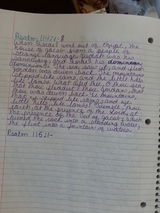 Psalm 114:1-8
When Israel went out of Egypt, the
house of Jacob from a people of
strange language; Judah was his
sanctuary, and Israel his dominion.
The sea saw it, and fled:
Jordan was driven back. The mountains
skipped like rams, and the little hills
like lambs. What ailed thee, O thou sea,
that thou fleddest? thou Jordan, that
thou wast driven back? Ye mountains,
that ye skipped like rams; and ye
little hills, like lambs? Tremble, thou
earth, at the presence of the Lord, at
the presence of the God of Jacob; Which
turned the rock into a standing water,
the flint into a fountain of waters.
Psalm 115:1-